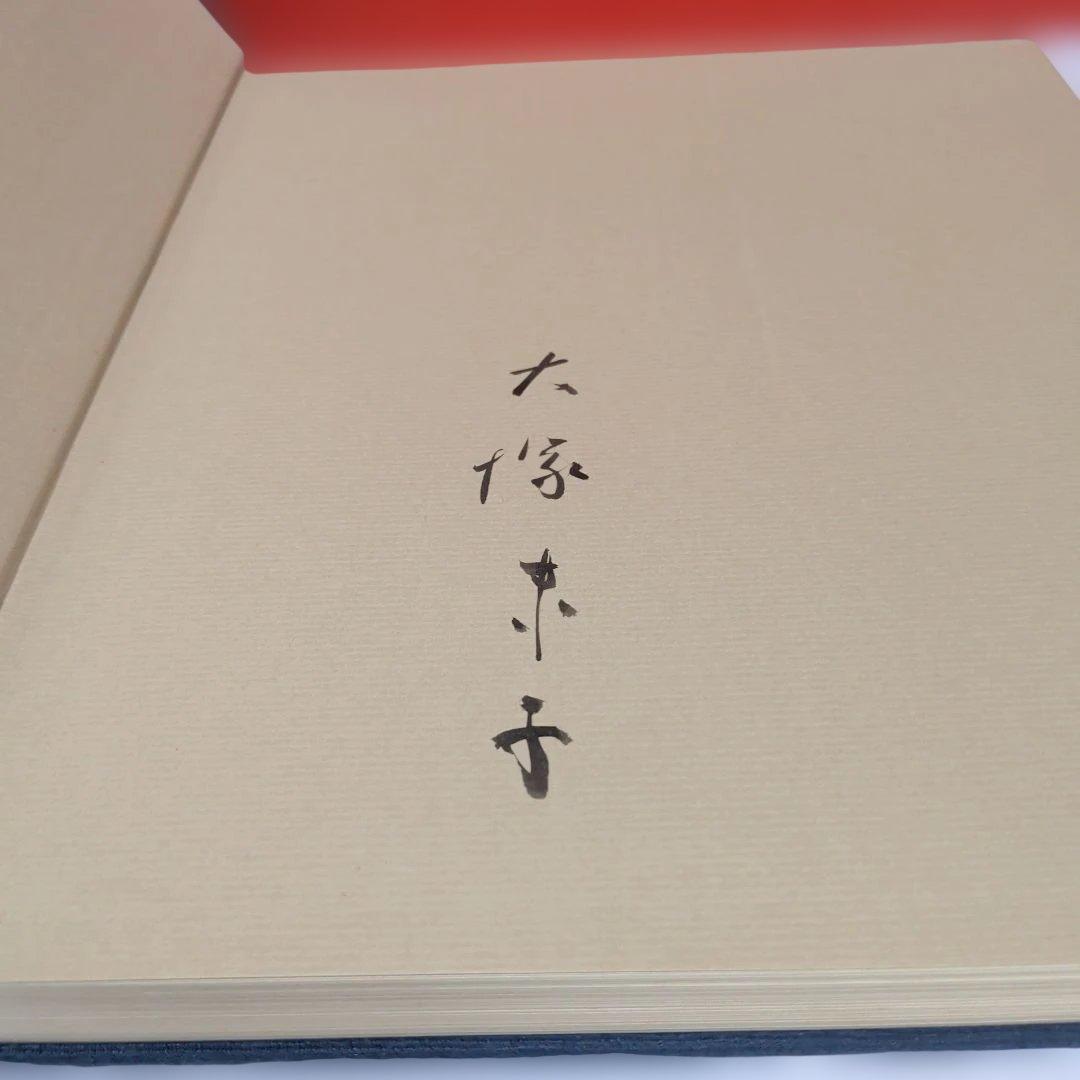 大塚末子